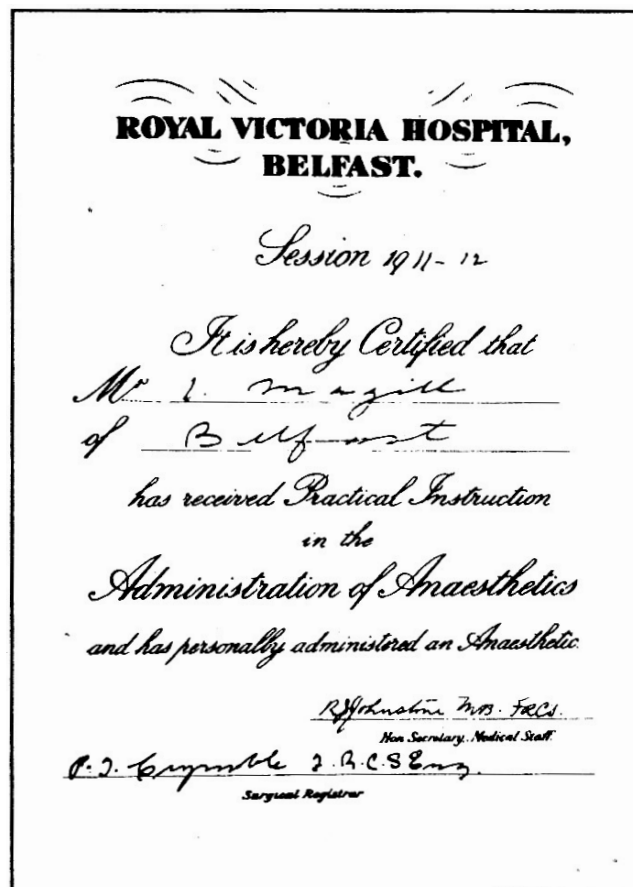 ROYAL VICTORIA HOSPITAL,
BELFAST.
Session 1911-12
It is hereby Certified that
Mr I. Magill
of Belfast
has received Practical Instruction
in the
Administration of Anaesthetics
and has personally administered an Anaesthetic.
RJJohnstone MB. FRCS.
Hon Secretary, Medical Staff.
P.T. Crymble F.R.C.S Eng.
Surgical Registrar